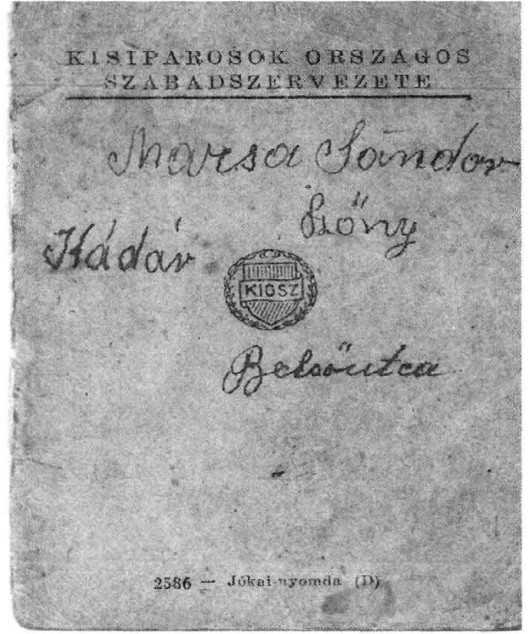 KISIPAROSOK ORSZÁGOS
SZABADSZERVEZETE
Marsa Sándor
Szőny
Kádár
KIOSZ
Belsőutca
2586 — Jókai-nyomda (D)